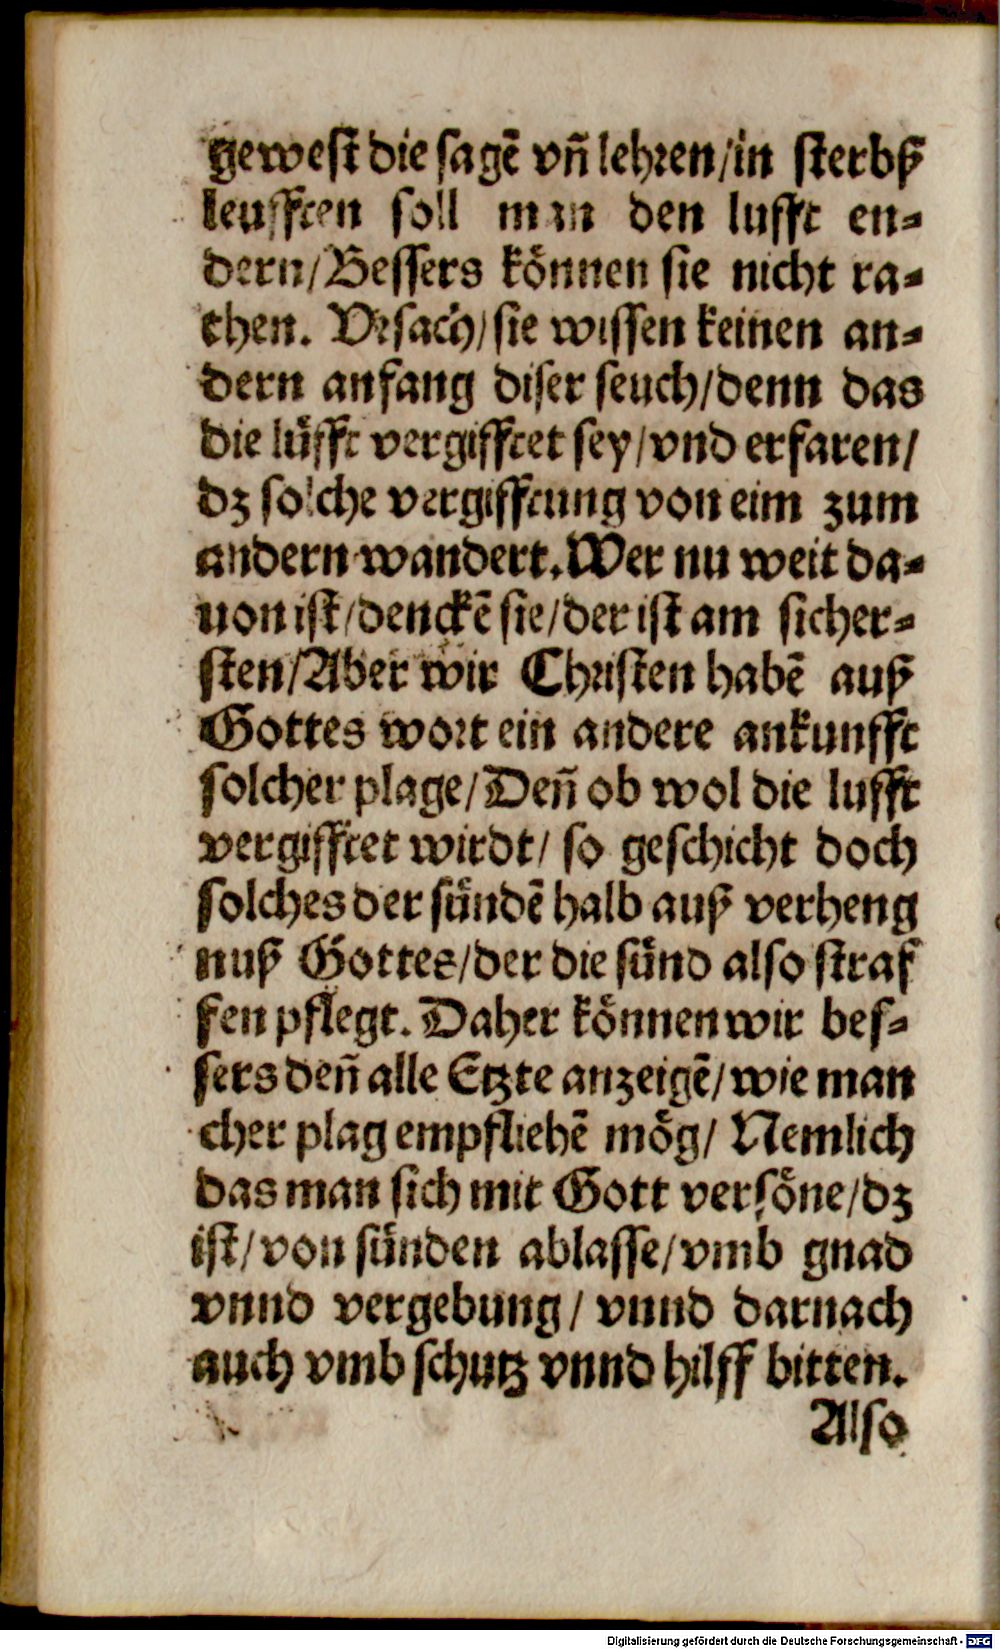 gewest die sagē vñ lehren/in sterbß
leufften soll man den lufft en⸗
dern/Bessers können sie nicht ra⸗
then. Vrsach/sie wissen keinen an⸗
dern anfang diser seuch/denn das
die lüfft vergifftet sey/vnd erfaren/
dz solche vergifftung von eim zum
andern wandert. Wer nu weit da⸗
uon ist/denckē sie/der ist am sicher⸗
sten/Aber wir Christen habē auß
Gottes wort ein andere ankunfft
solcher plage/Deñ ob wol die lufft
vergifftet wirdt/ so geschicht doch
solches der sündē halb auß verheng
nuß Gottes/der die sünd also straf
fen pflegt. Daher können wir bes⸗
sers deñ alle Etzte anzeigē/wie man
cher plag empfliehē mög/ Nemlich
das man sich mit Gott versöne/dz
ist/von sünden ablasse/vmb gnad
vnnd vergebung/ vnnd darnach
auch vmb schutz vnnd hilff bitten.
Also
Digitalisierung gefördert durch die Deutsche Forschungsgemeinschaft - DFG